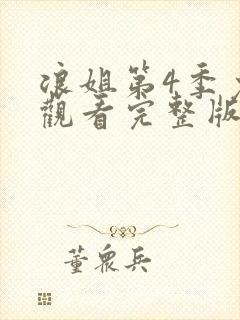 浪姐第4季
觀看完整版
董眾兵